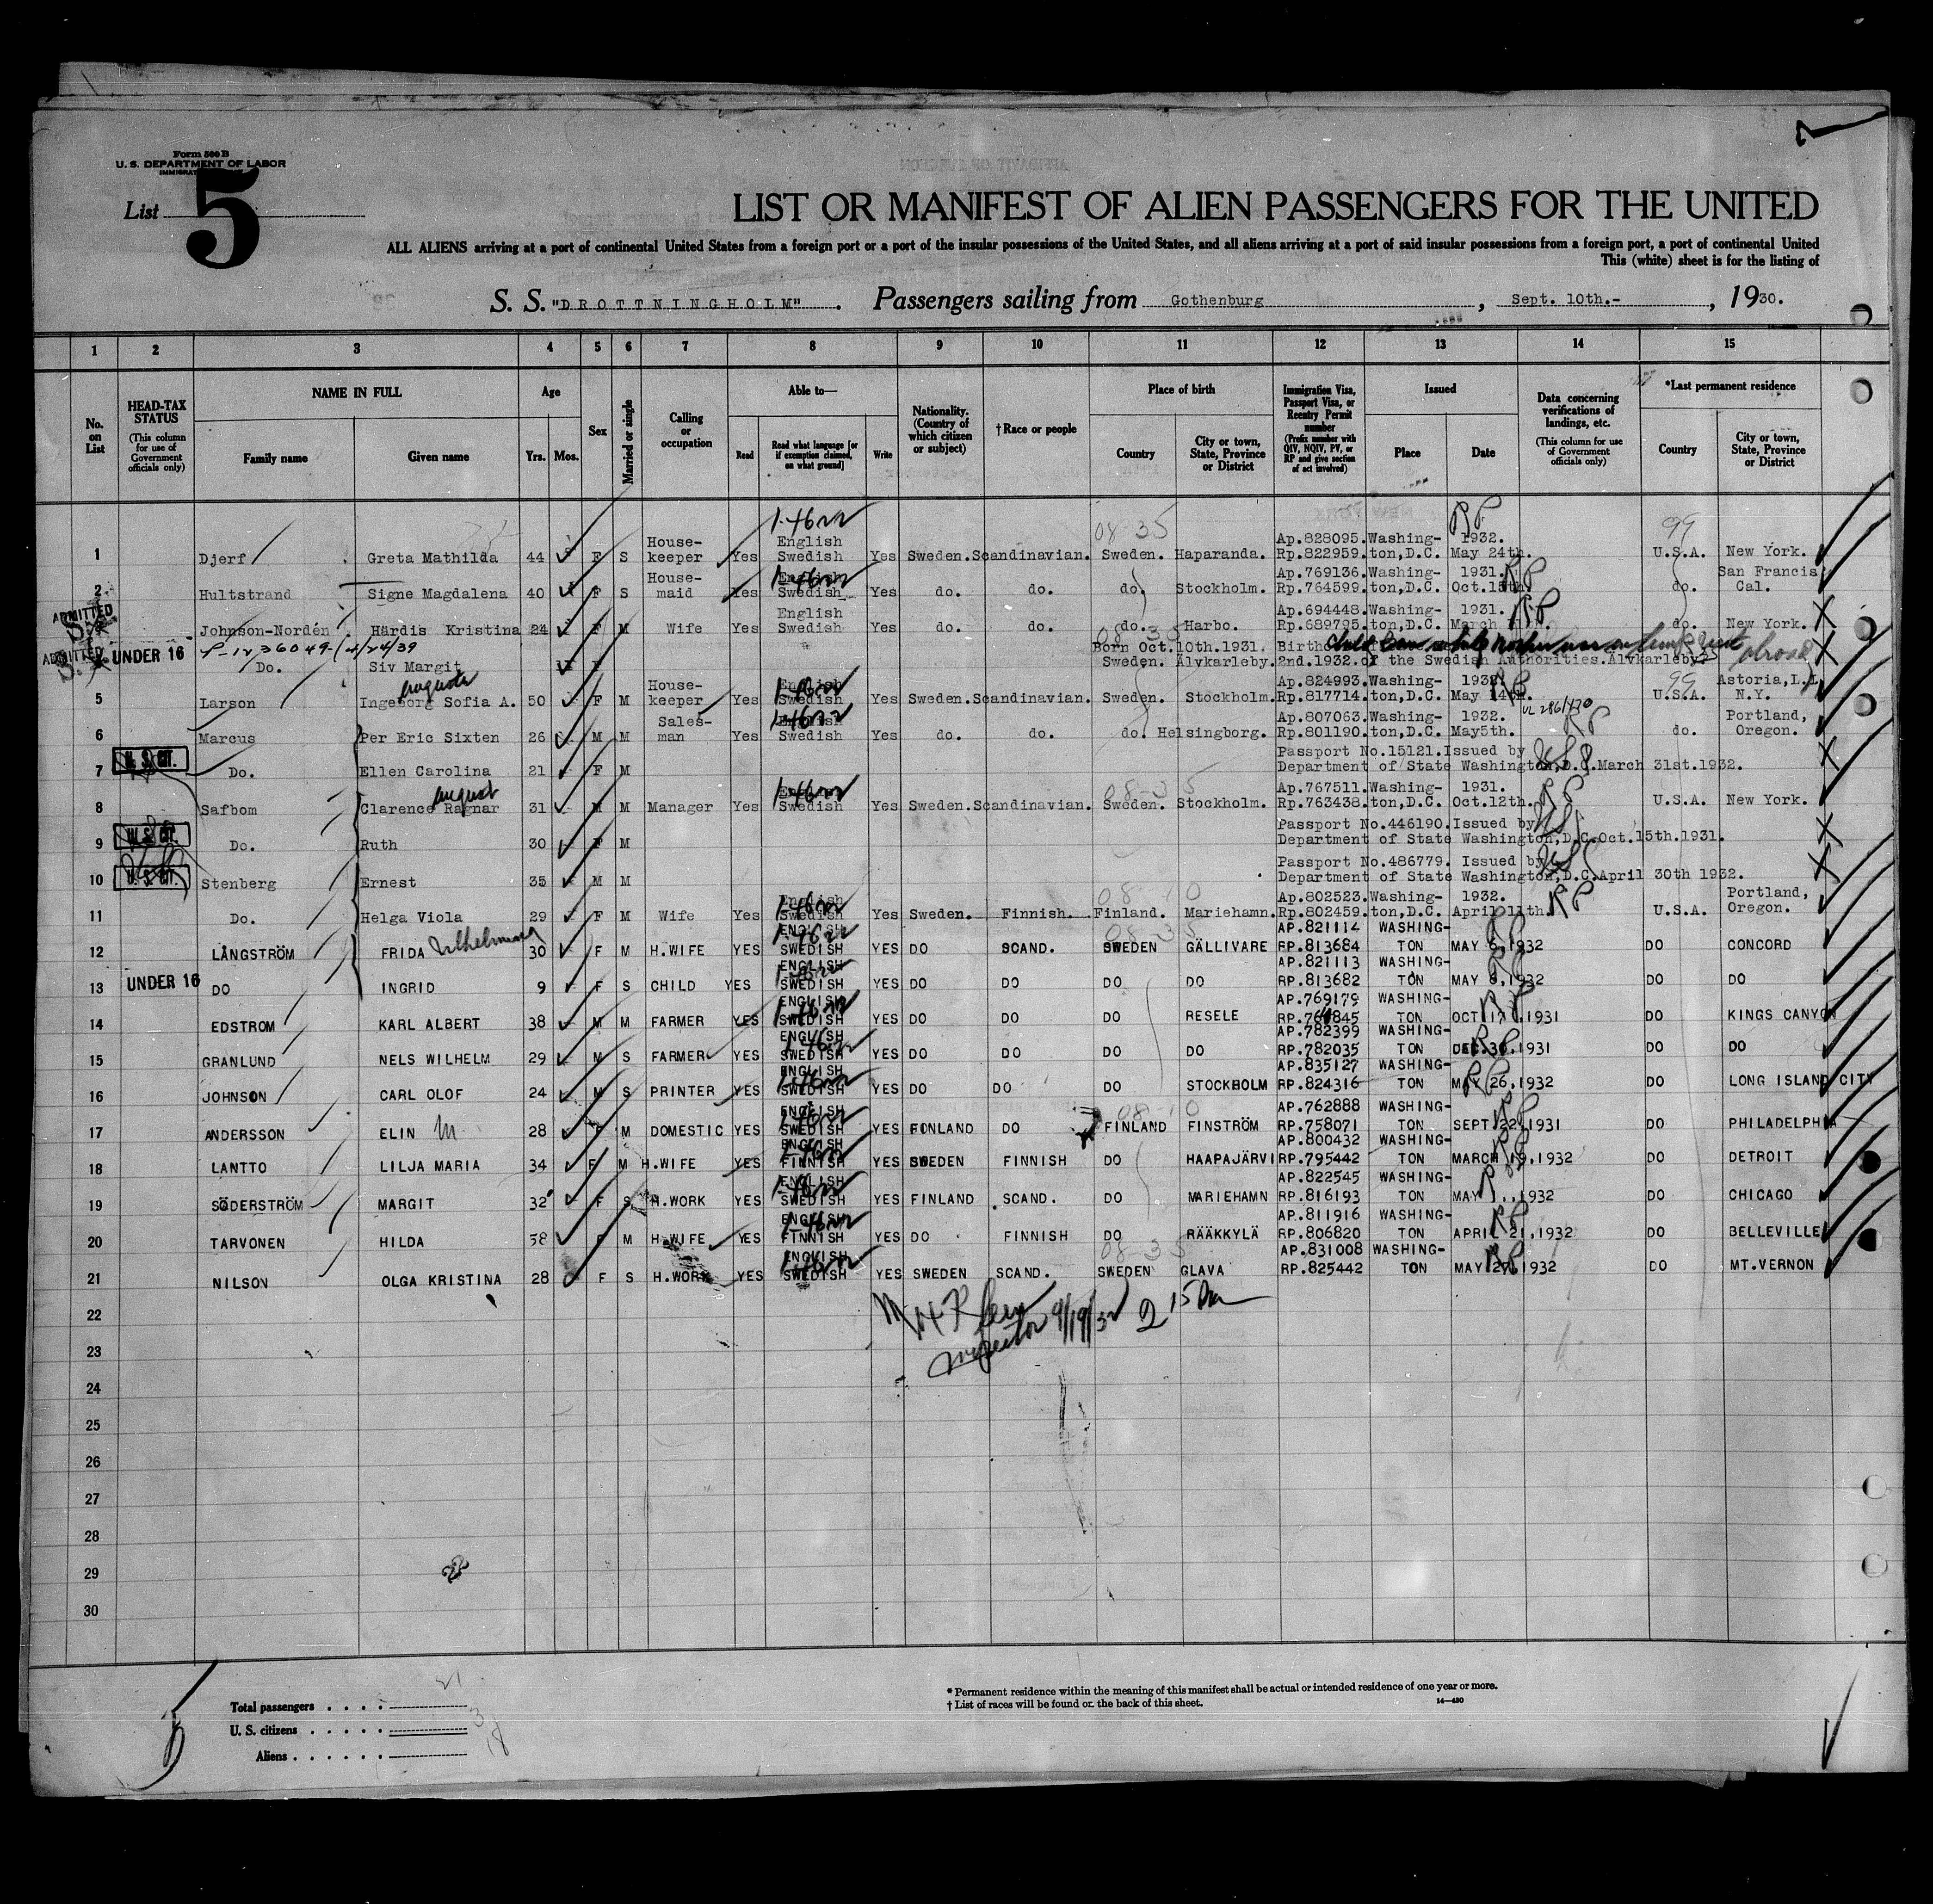 Form 500 B
U. S. DEPARTMENT OF LABOR
List 5
LIST OR MANIFEST OF ALIEN PASSENGERS FOR THE UNITED
ALL ALIENS arriving at a port of continental United States from a foreign port or a port of the insular possessions of the United States, and all aliens arriving at a port of said insular possessions from a foreign port, a port of continental United
This (white) sheet is for the listing of
S. S. "DROTTNINGHOLM". Passengers sailing from Gothenburg, Sept. 10th.-, 1930.
1 2 3 4 5 6 7 8 9 10 11 12 13 14 15
No. on List
HEAD-TAX STATUS (This column for use of Government officials only)
NAME IN FULL Family name Given name
Age Yrs. Mos.
Sex
Married or single
Calling or occupation
Able to— Read Read what language [or if exemption claimed, on what ground] Write
Nationality. (Country of which citizen or subject)
†Race or people
Place of birth Country City or town, State, Province or District
Immigration Visa, Passport Visa, or Reentry Permit number (Prefix number with QIV, NQIV, PV, or RP and give section of act involved)
Issued Place Date
Data concerning verifications of landings, etc. (This column for use of Government officials only)
*Last permanent residence Country City or town, State, Province or District
1 Djerf Greta Mathilda 44 F S House-keeper Yes English Swedish Yes Sweden. Scandinavian. Sweden. Haparanda. Ap.828095. Rp.822959. Washing-ton,D.C. 1932. May 24th. RP U.S.A. New York.
2 Hultstrand Signe Magdalena 40 F S House-maid Yes English Swedish Yes do. do. do. Stockholm. Ap.769136. Rp.764599. Washing-ton,D.C. 1931. Oct.15th. RP do. San Francis Cal.
ADMITTED Johnson-Nordén Härdis Kristina 24 F M Wife Yes English Swedish Yes do. do. do. Harbo. Ap.694448. Rp.689795. Washing-ton,D.C. 1931. March RP do. New York.
ADMITTED UNDER 16 Do. Siv Margit F Born Oct.10th.1931. Sweden. Alvkarleby. 2nd.1932.of the Swedish Authorities.Alvkarleby. abroad
5 Larson Ingeborg Sofia A. Augusta 50 F M House-keeper Yes English Swedish Yes Sweden. Scandinavian. Sweden. Stockholm. Ap.824993. Rp.817714. Washing-ton,D.C. 1932. May 14th. RP U.S.A. Astoria,L.I. N.Y.
6 Marcus Per Eric Sixten 26 M M Sales-man Yes English Swedish Yes do. do. do. Helsingborg. Ap.807063. Rp.801190. Washing-ton,D.C. 1932. May5th. RP do. Portland, Oregon.
U. S. CIT. 7 Do. Ellen Carolina 21 F M Passport No.15121.Issued by Department of State Washington,D.C.March 31st.1932.
8 Safbom Clarence Ragnar August 31 M M Manager Yes English Swedish Yes Sweden. Scandinavian. Sweden. Stockholm. Ap.767511. Rp.763438. Washing-ton,D.C. 1931. Oct.12th. RP U.S.A. New York.
U. S. CIT. 9 Do. Ruth 30 F M Passport No.446190.Issued by Department of State Washington,D.C.Oct.15th.1931.
U. S. CIT. 10 Stenberg Ernest 35 M M Passport No.486779. Issued by Department of State Washington,D.C.April 30th 1932.
11 Do. Helga Viola 29 F M Wife Yes English Swedish Yes Sweden. Finnish. Finland. Mariehamn. Ap.802523. Rp.802459. Washing-ton,D.C. 1932. April 11th. RP U.S.A. Portland, Oregon.
12 LÅNGSTRÖM FRIDA Wilhelmina 30 F M H.WIFE YES ENGLISH SWEDISH YES DO SCAND. SWEDEN GÄLLIVARE AP.821114 RP.813684 WASHING-TON MAY 6,1932 DO CONCORD
UNDER 16 13 DO INGRID 9 F S CHILD YES ENGLISH SWEDISH YES DO DO DO DO AP.821113 RP.813682 WASHING-TON MAY 6,1932 DO DO
14 EDSTROM KARL ALBERT 38 M M FARMER YES ENGLISH SWEDISH YES DO DO DO RESELE AP.769179 RP.764845 WASHING-TON OCT 17,1931 DO KINGS CANYON
15 GRANLUND NELS WILHELM 29 M S FARMER YES ENGLISH SWEDISH YES DO DO DO DO AP.782399 RP.782035 WASHING-TON DEC.30,1931 DO DO
16 JOHNSON CARL OLOF 24 M S PRINTER YES ENGLISH SWEDISH YES DO DO DO STOCKHOLM AP.835127 RP.824316 WASHING-TON MAY 26,1932 DO LONG ISLAND CITY
17 ANDERSSON ELIN M 28 F M DOMESTIC YES ENGLISH SWEDISH YES FINLAND DO FINLAND FINSTRÖM AP.762888 RP.758071 WASHING-TON SEPT.22,1931 DO PHILADELPHIA
18 LANTTO LILJA MARIA 34 F M H.WIFE YES ENGLISH FINNISH YES SWEDEN FINNISH DO HAAPAJÄRVI AP.800432 RP.795442 WASHING-TON MARCH 19,1932 DO DETROIT
19 SÖDERSTRÖM MARGIT 32 F S H.WORK YES ENGLISH SWEDISH YES FINLAND SCAND. DO MARIEHAMN AP.822545 RP.816193 WASHING-TON MAY ,1932 DO CHICAGO
20 TARVONEN HILDA 58 F M H.WIFE YES ENGLISH FINNISH YES DO FINNISH DO RÄÄKKYLÄ AP.811916 RP.806820 WASHING-TON APRIL 21,1932 DO BELLEVILLE
21 NILSON OLGA KRISTINA 28 F S H.WORK YES ENGLISH SWEDISH YES SWEDEN SCAND. SWEDEN GLAVA AP.831008 RP.825442 WASHING-TON MAY 27,1932 DO MT.VERNON
22
Inspector 9/19/32
23
24
25
26
27
28
29
30
Total passengers . . . . 21
U. S. citizens . . . . . 3
Aliens . . . . . . 18
* Permanent residence within the meaning of this manifest shall be actual or intended residence of one year or more.
† List of races will be found on the back of this sheet.
14—430